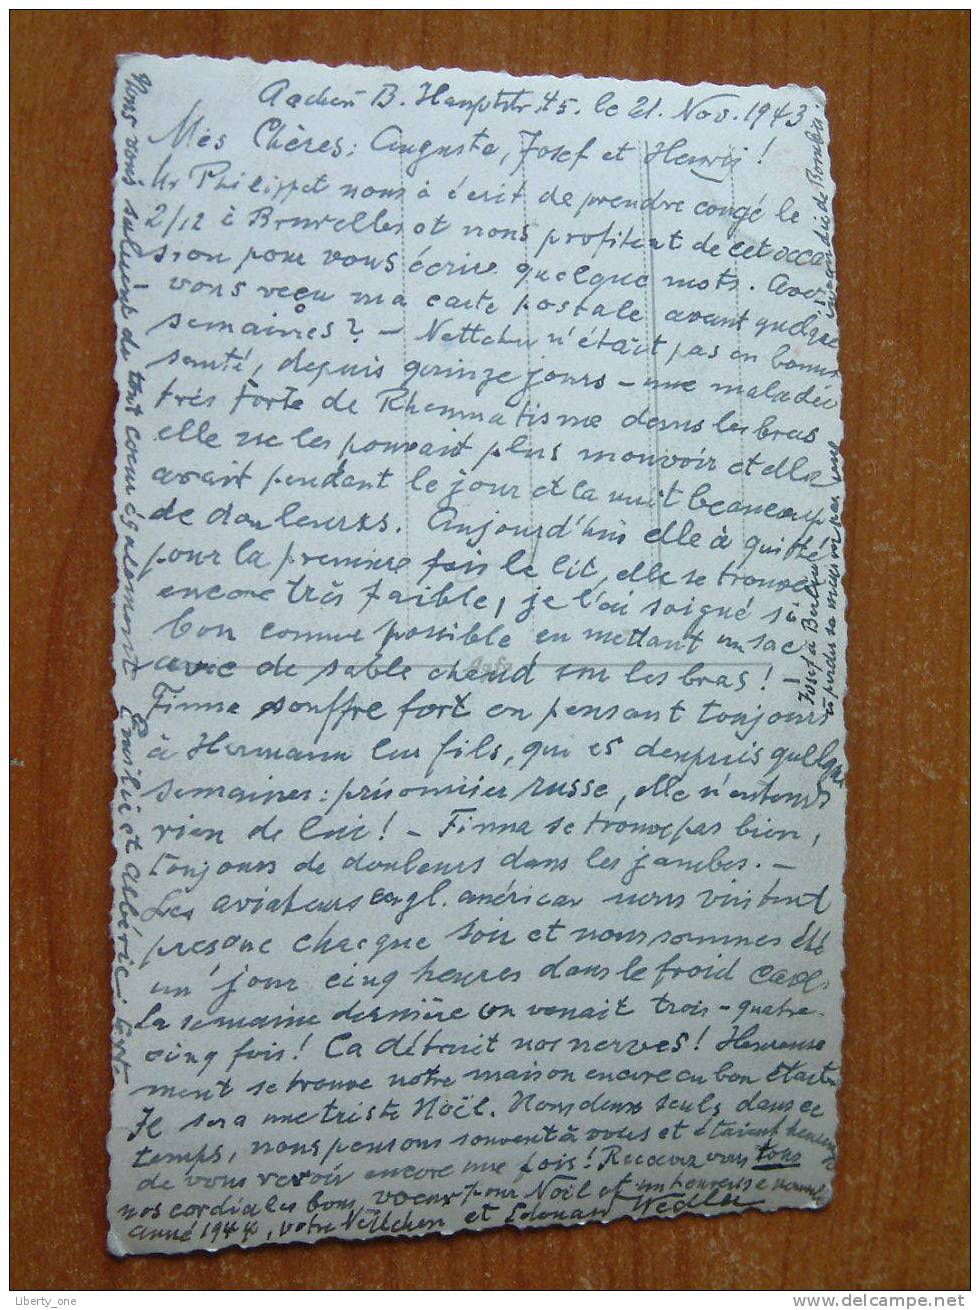 Aachen B. Hauptstr. 45. le 21. Nov. 1943
Mes Chères: Auguste, Josef et Henri!
Mr Philippet nous à écrit de prendre congé le
2/12 à Bruxelles et nous profitent de cet occa-
sion pour vous écrire quelque mots. Avez
vous reçu ma carte postale avant quelque
semaines? – Nettchen n'était pas en bonne
santé, depuis quinze jours – une maladie
très forte de Rheumatisme dans les bras
elle ne les pouvait plus mouvoir et elle
avait pendant le jour et la nuit beaucoup
de douleurs. Aujourd'hui elle à quitté
pour la première fois le lit, elle se trouve
encore très faible, je l'ai soigné si
bon comme possible en mettant un sac
avec de sable chaud sur les bras! –
Finna souffre fort en pensant toujours
à Hermann leur fils, qui es deupuis quelque
semaines: prisonnier russe, elle n'entend
rien de lui! – Finna se trouve pas bien,
toujours de douleurs dans les jambes. –
Les aviateurs engl. américan nous visitent
presque chaque soir et nous sommes été
un' jour cinq heures dans le froid
La semaine dernière on venait trois – quatre-
cinq fois! Ca détruit nos nerves! Heureuse
ment se trouve notre maison encore en bon état
Il sera une triste Noël. Nous deux seuls dans ce
temps, nous pensons souvent à vous et étaient heureux
de vous revoir encore une fois! Recevez vous tous
nos cordiales bons voeux pour Noël et un heureuse nouvelle
année 1944, votre Nettchen et Edouard
Nous vous saluent de tout coeur également Emilie et Albéric.
Josef à Berlin